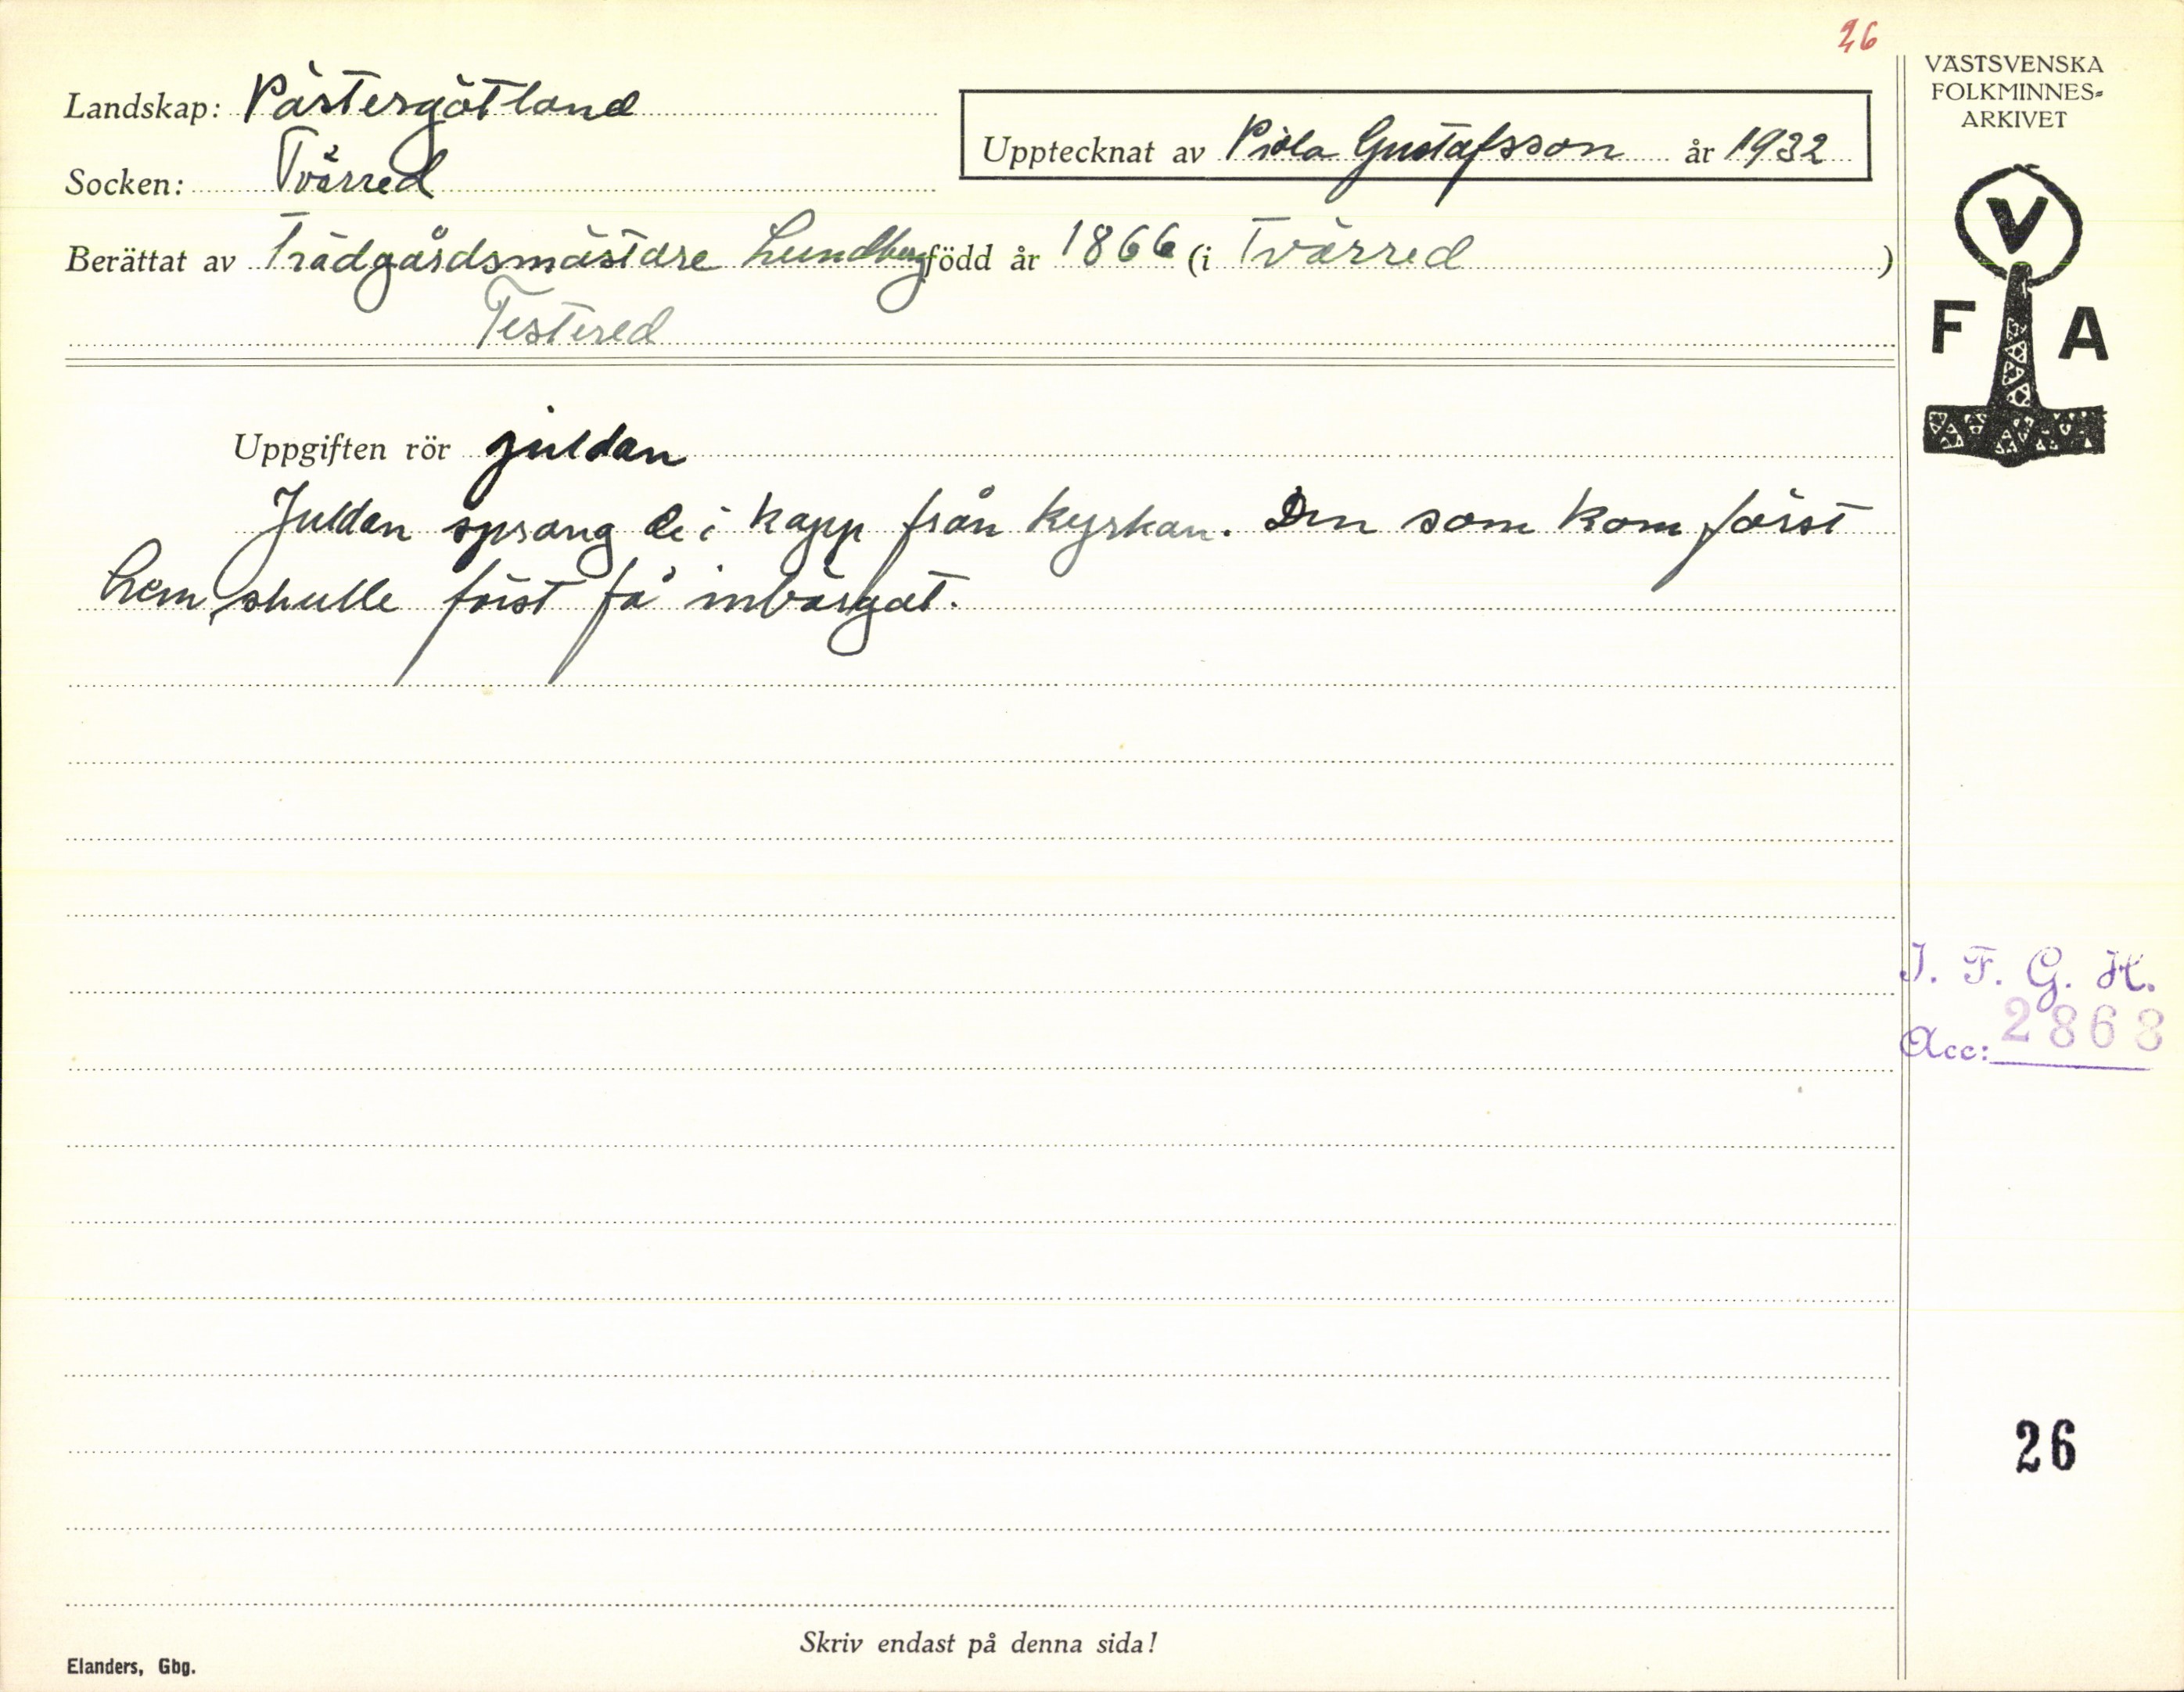 26
VÄSTSVENSKA
FOLKMINNES-
ARKIVET
Landskap: Västergötland
Upptecknat av Viola Gustafsson år 1932
Socken: Tvärred
Berättat av Trädgårdsmästare Lundberg född år 1866 (i Tvärred)
Testered
V
F A
Uppgiften rör juldan
Juldan sprang de i kapp från kyrkan. Den som kom först
hem, skulle först få inbärgat.
I. F. G. H.
Acc: 2868
26
Skriv endast på denna sida!
Elanders, Gbg.